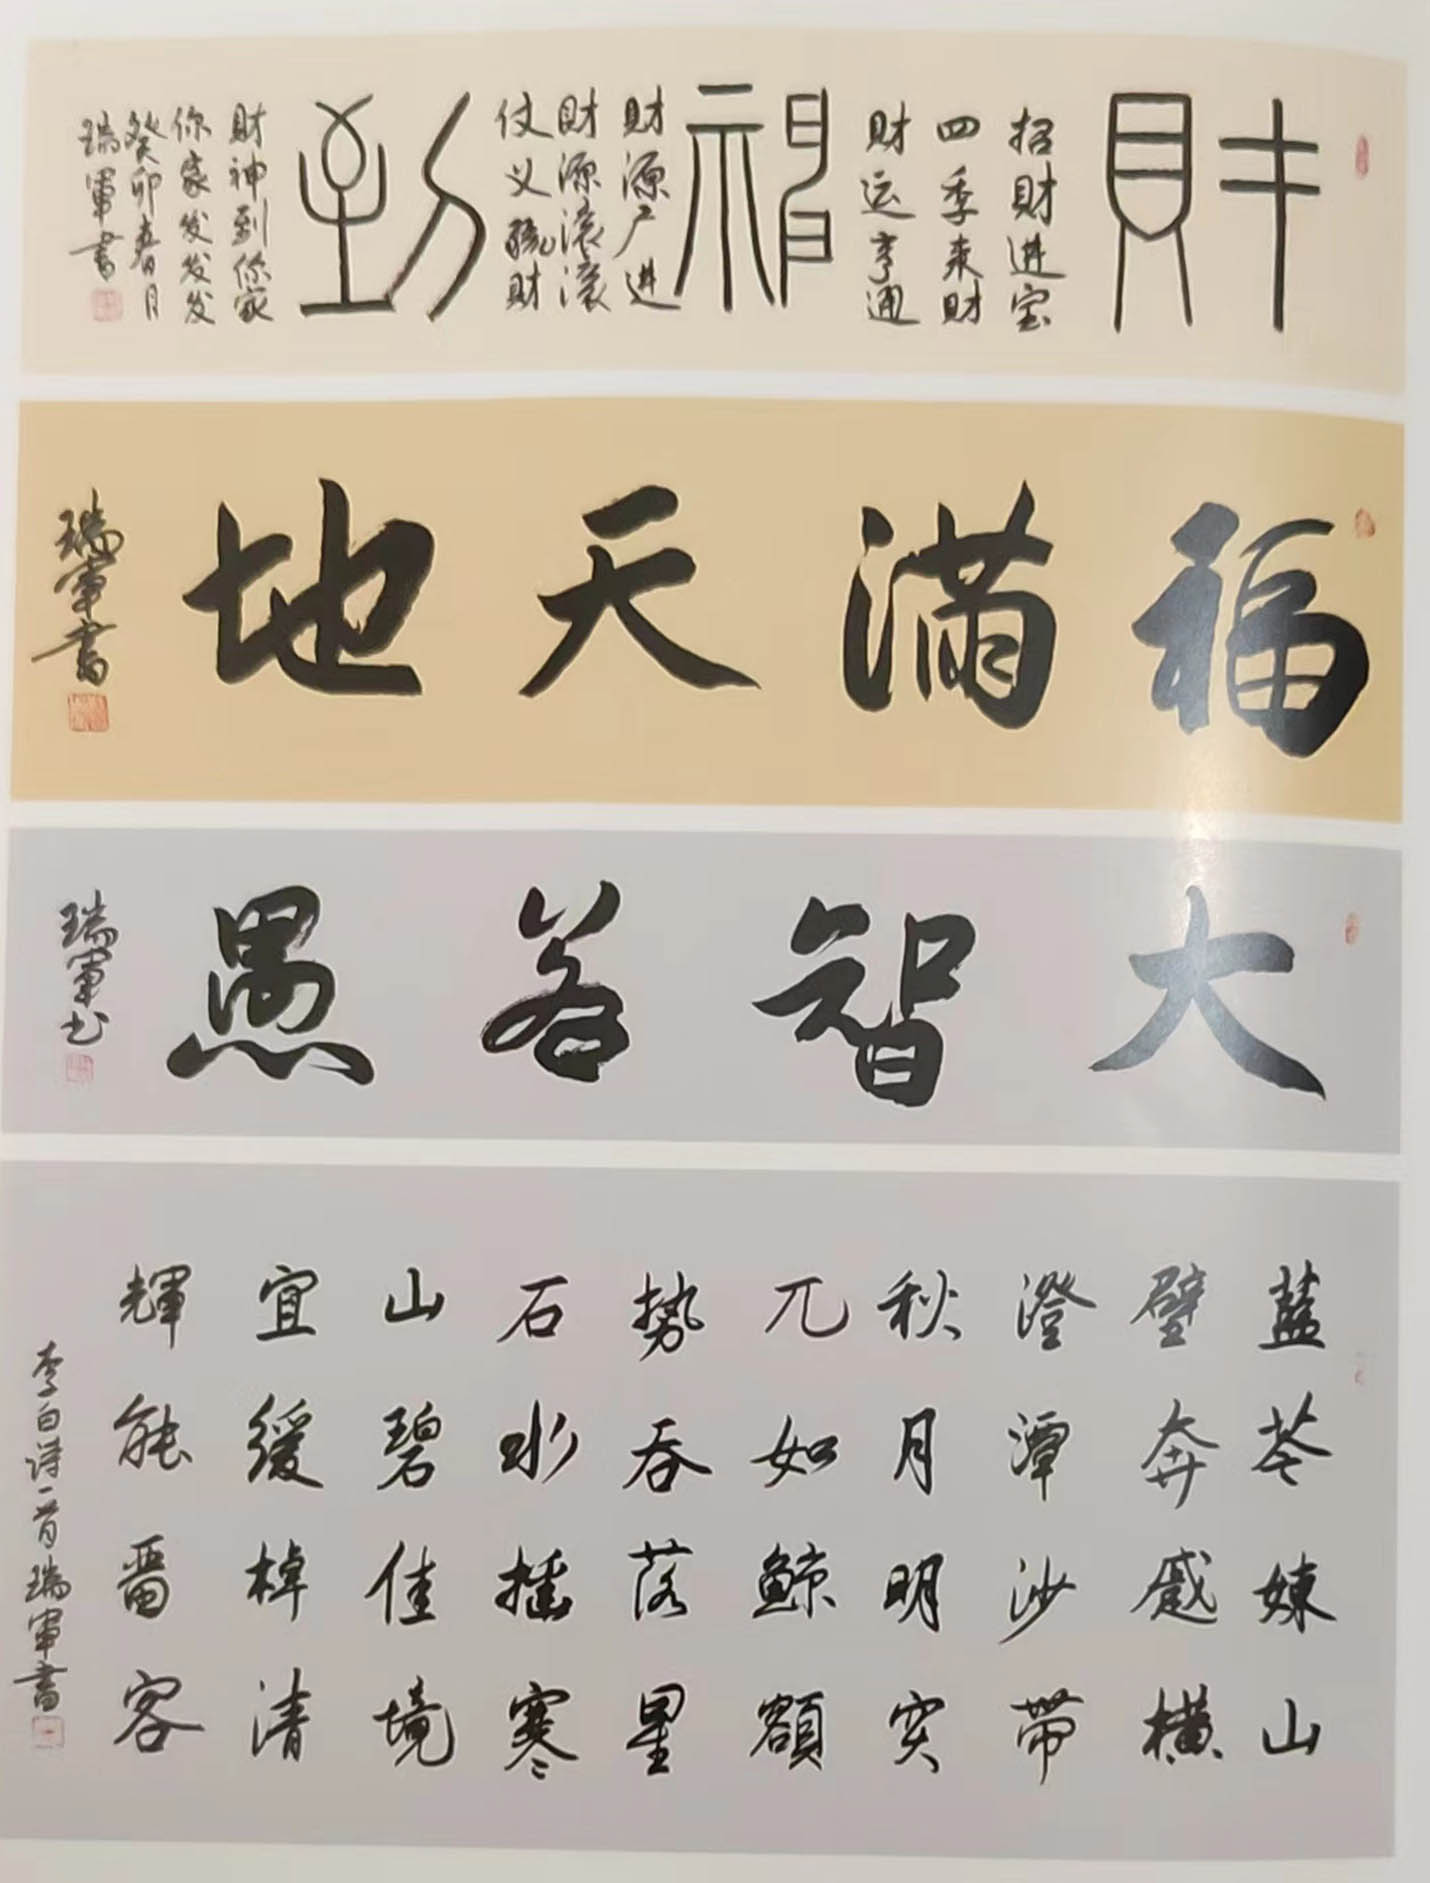 財
招財进宝
四季来财
財运亨通
神
財源广进
财源滚滚
仗义疏财
到
財神到你家
你家发发发
癸卯春月
瑞軍書
福满天地
瑞軍書
大智若愚
瑞軍书
藍芩娕山
壁奔蹙横
澄潭沙带
秋月明突
兀如鲸額
势吞落星
石水摇寒
山碧佳境
宜緩棹清
輝能畱客
李白诗一首瑞軍書